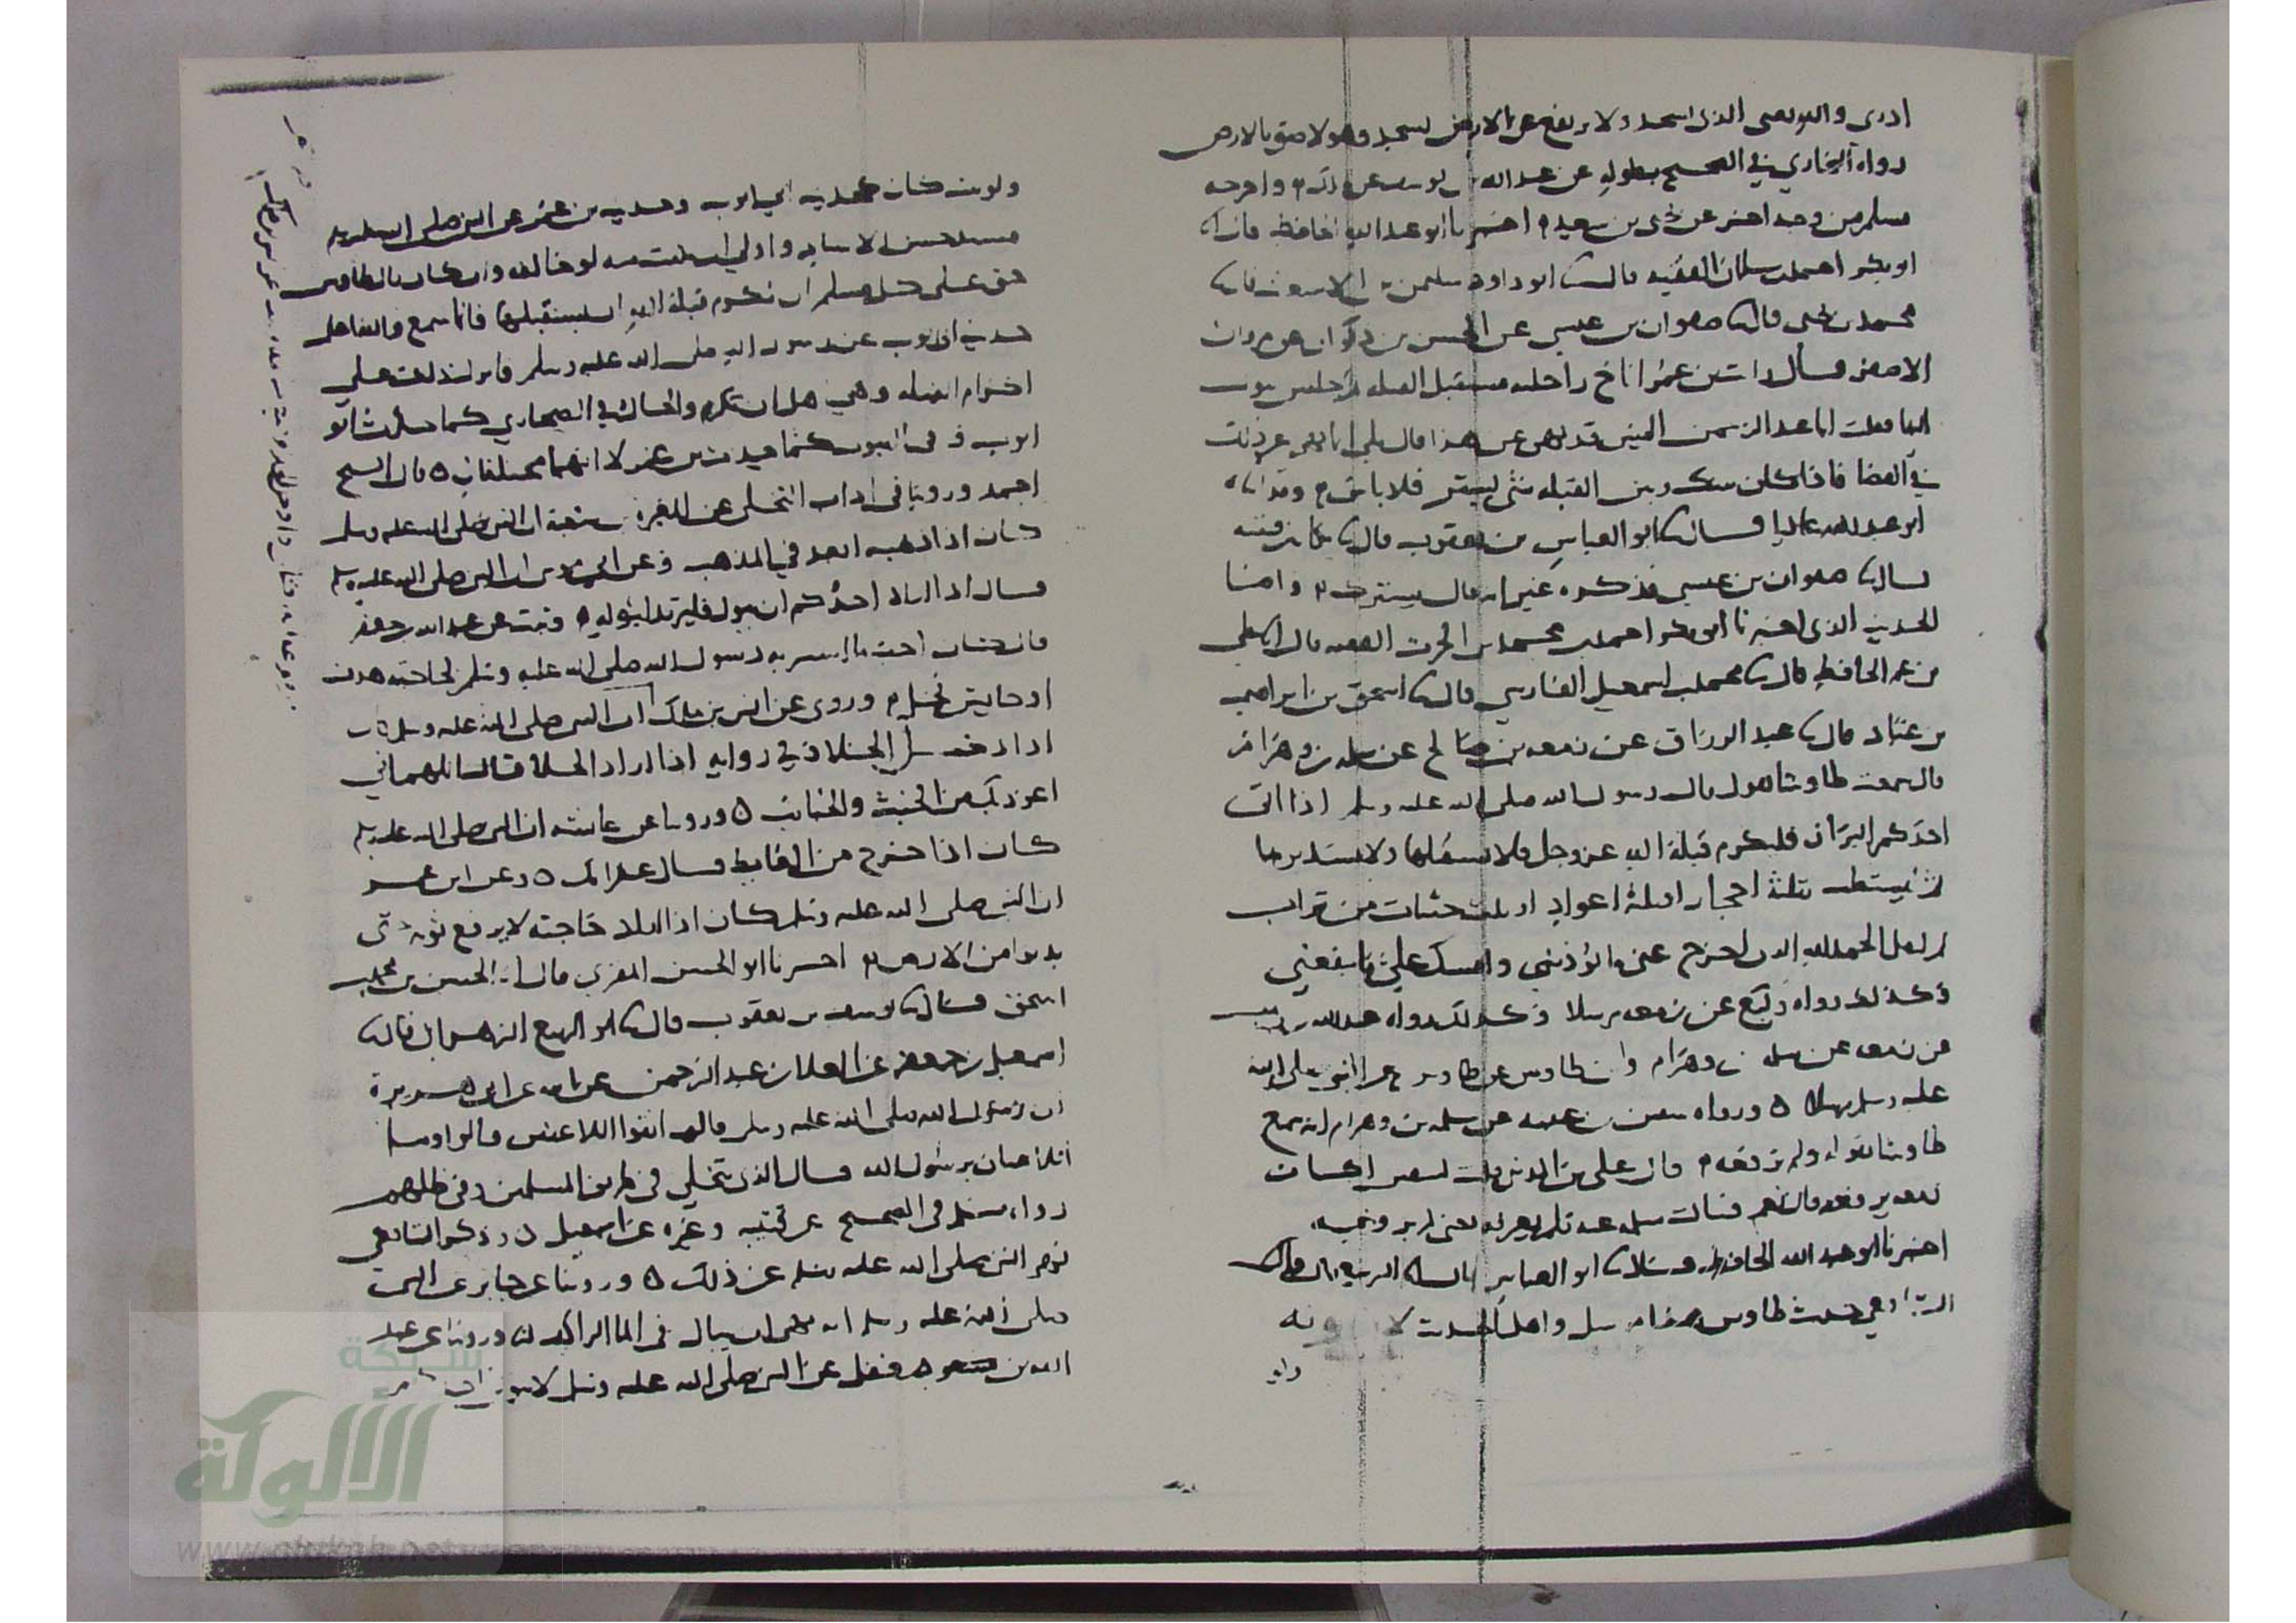 ادرى والله يعني الذي يسجد ولا يرتفع عن الارض يسجد وهو لاصق بالارض
رواه البخاري في الصحيح بطوله عن عبد الله بن يوسف عن مالك واخرجه
مسلم من وجه اخر عن يحيى بن سعيد اخبرنا ابو عبد الله الحافظ قال انا
ابو بكر احمد بن سلمان الفقيه قال ثنا ابو داود سليمن بن الاشعث قال ثنا
محمد بن يحيى قال ثنا صفوان بن عيسى عن الحسن بن ذكوان عن مروان
الاصفر قال رايت بن عمر اناخ راحلته مستقبل القبلة ثم جلس يبول
اليها فقلت ابا عبد الرحمن اليس قد نهي عن هذا قال بلى انما نهي عن ذلك
في الفضا فاذا كان بينك وبين القبلة شي يسترك فلا باس
ابو عبد الله عاليا قال ثنا ابو العباس بن يعقوب قال ثنا بكار بن قتيبة
قال ثنا صفوان بن عيسى فذكره غير انه قال يسترك واما
الحديث الذي اخبرنا ابو بكر احمد بن محمد بن الحرث الفقيه قال انا علي
بن عمر الحافظ قال ثنا محمد بن اسمعيل الفارسي قال ثنا اسحق بن ابراهيم
بن عباد قال ثنا عبد الرزاق عن زمعة بن صالح عن سلمة بن وهرام
قال سمعت طاوسا يقول قال رسول الله صلى الله عليه وسلم اذا اتى
احدكم البراز فليكرم قبلة الله عز وجل فلا يستقبلها ولا يستدبرها
ثم ليستطب بثلثة احجار او ثلثة اعواد او ثلث حثيات من تراب
ثم ليقل الحمد لله الذي اخرج عني ما يؤذيني وامسك علي ما ينفعني
وكذلك رواه وكيع عن زمعة مرسلا وكذلك رواه عبد الله بن وهب
عن زمعة عن سلمة بن وهرام وابن طاوس عن طاوس عن النبي صلى الله
عليه وسلم مرسلا ورواه سفين بن عيينة عن سلمة بن وهرام انه سمع
طاوسا يقوله ولم يرفعه قال علي بن المديني قلت لسفين اكان
زمعة يرفعه قال نعم فسالت سلمة عنه فلم يعرفه يعني لم يرفعه
اخبرنا ابو عبد الله الحافظ قال ثنا ابو العباس قال انا الربيع قال قال
الشافعي حديث طاوس هذا مرسل واهل الحديث لا يثبتونه
ولو ثبت كان كحديث ابي ايوب وحديث بن عمر عن النبي صلى الله عليه وسلم
مسند حسن الاسناد واولى ان يثبت منه لو خالفه وان كان طاوس
حق على كل مسلم ان يكرم قبلة الله ان يستقبلها فانما سمع والله اعلم
حديث ابي ايوب عن رسول الله صلى الله عليه وسلم فانزل ذلك على
اكرام القبلة وهي اهل ان تكرم والحال في الصحاري كما حدث ابو
ايوب وفي البيوت كما حدث بن عمر لا انهما مختلفان قال الشيخ
احمد وروينا في اداب التخلي عن المغيرة بن شعبة ان النبي صلى الله عليه وسلم
كان اذا ذهب ابعد في المذهب وعن ابي موسى ان النبي صلى الله عليه وسلم
قال اذا اراد احدكم ان يبول فليرتد لبوله وعن عبد الله بن جعفر
قال كان احب ما استتر به رسول الله صلى الله عليه وسلم لحاجته هدف
او حايش نخل وروى عن انس بن مالك ان النبي صلى الله عليه وسلم كان
اذا دخل الخلا وفي رواية اذا اراد الخلا قال اللهم اني
اعوذ بك من الخبث والخبائث وروينا عن عائشة ان النبي صلى الله عليه وسلم
كان اذا خرج من الغايط قال غفرانك وعن ابن عمر
ان النبي صلى الله عليه وسلم كان اذا اراد حاجته لا يرفع ثوبه حتى
يدنوا من الارض اخبرنا ابو الحسن المقري قال انا الحسن بن محمد بن
اسحق قال ثنا يوسف بن يعقوب قال ثنا ابو الربيع الزهراني قال ثنا
اسمعيل بن جعفر عن العلا بن عبد الرحمن عن ابيه عن ابي هريرة
ان رسول الله صلى الله عليه وسلم قال اتقوا اللاعنين قالوا وما
اللاعنان يرسول الله قال الذي يتخلى في طريق المسلمين وفي ظلهم
رواه مسلم في الصحيح عن قتيبة وغيره عن اسمعيل وذكر الشافعي
نهي النبي صلى الله عليه وسلم عن ذلك وروينا عن جابر عن النبي
صلى الله عليه وسلم انه نهى ان يبال في الما الراكد وروينا عن عبد
الله بن مغفل عن النبي صلى الله عليه وسلم لا يبولن
شبكة
الألوكة
www.alukah.net